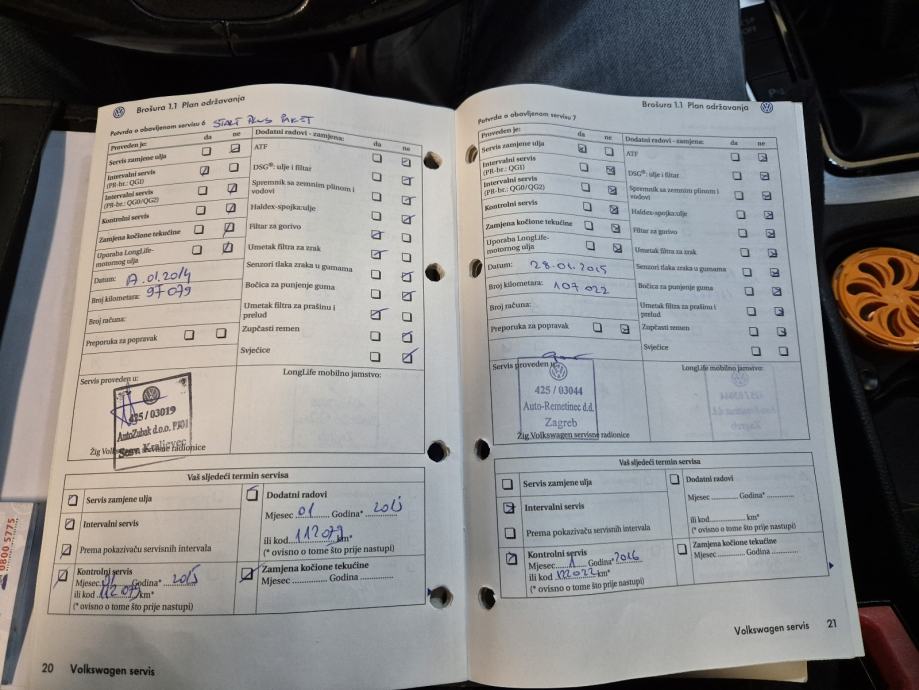 Brošura 1.1 Plan održavanja
Potvrda o obavljenom servisu 6 START PLUS PAKET
Proveden je: da ne
Servis zamjene ulja
Intervalni servis
(PR-br.: QG1)
Intervalni servis
(PR-br.: QG0/QG2)
Kontrolni servis
Zamjena kočione tekućine
Uporaba LongLife-
motornog ulja
Datum: 17.01.2014
Broj kilometara: 97079
Broj računa:
Preporuka za popravak
Dodatni radovi - zamjena: da ne
ATF
DSG®: ulje i filtar
Spremnik sa zemnim plinom i
vodovi
Haldex-spojka:ulje
Filtar za gorivo
Umetak filtra za zrak
Senzori tlaka zraka u gumama
Bočica za punjenje guma
Umetak filtra za prašinu i
prelud
Zupčasti remen
Svjećice
Servis proveden u:
425 / 03019
AutoZubak d.o.o.
Sesv. Kraljevec
Žig Volkswagen servisne radionice
LongLife mobilno jamstvo:
Vaš sljedeći termin servisa
Servis zamjene ulja
Intervalni servis
Prema pokazivaču servisnih intervala
Kontrolni servis
Mjesec 01 Godina* 2015
ili kod 112079 km*
(* ovisno o tome što prije nastupi)
Dodatni radovi
Mjesec 01 Godina* 2015
ili kod 112079 km*
(* ovisno o tome što prije nastupi)
Zamjena kočione tekućine
Mjesec ............ Godina ............
20 Volkswagen servis
Brošura 1.1 Plan održavanja
Potvrda o obavljenom servisu 7
Proveden je: da ne
Servis zamjene ulja
Intervalni servis
(PR-br.: QG1)
Intervalni servis
(PR-br.: QG0/QG2)
Kontrolni servis
Zamjena kočione tekućine
Uporaba LongLife-
motornog ulja
Datum: 28.01.2015
Broj kilometara: 107022
Broj računa:
Preporuka za popravak
Dodatni radovi - zamjena: da ne
ATF
DSG®: ulje i filtar
Spremnik sa zemnim plinom i
vodovi
Haldex-spojka:ulje
Filtar za gorivo
Umetak filtra za zrak
Senzori tlaka zraka u gumama
Bočica za punjenje guma
Umetak filtra za prašinu i
prelud
Zupčasti remen
Svjećice
Servis proveden u:
425 / 03044
Auto-Remetinec d.d.
Zagreb
Žig Volkswagen servisne radionice
LongLife mobilno jamstvo:
Vaš sljedeći termin servisa
Servis zamjene ulja
Intervalni servis
Prema pokazivaču servisnih intervala
Kontrolni servis
Mjesec 1 Godina* 2016
ili kod 122022 km*
(* ovisno o tome što prije nastupi)
Dodatni radovi
Mjesec ............ Godina* ............
ili kod ............ km*
(* ovisno o tome što prije nastupi)
Zamjena kočione tekućine
Mjesec ............ Godina ............
Volkswagen servis 21
0800 5775